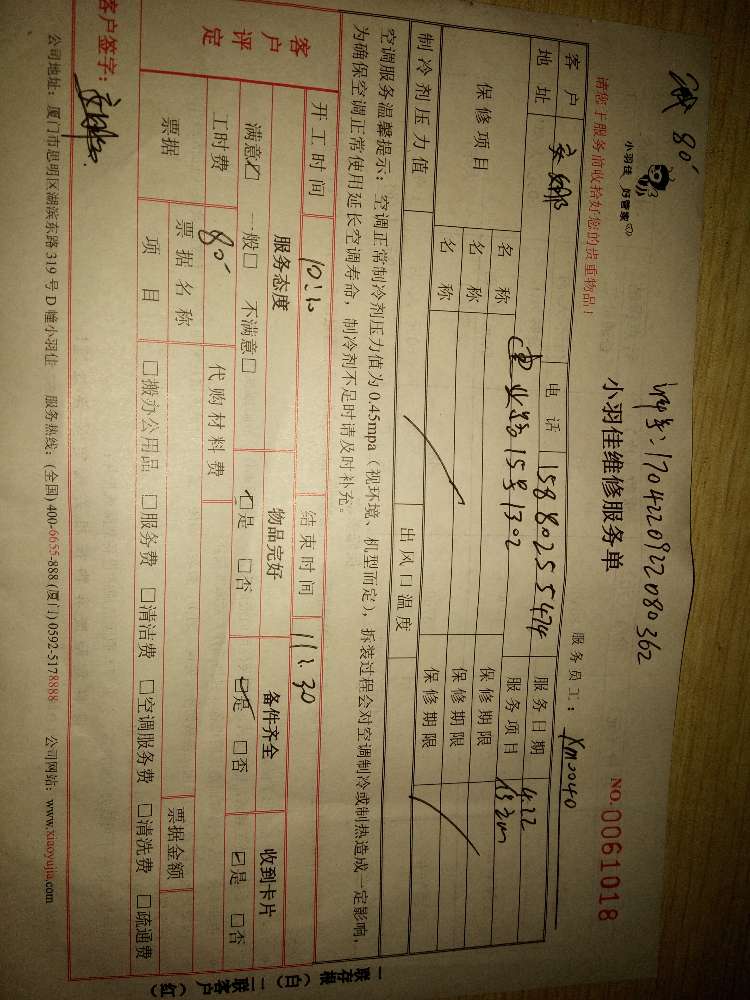 80
小羽佳 好管家
单号:170422092208 0362
小羽佳维修服务单
NO.0061018
请您于服务前收拾好您的贵重物品!
服务员工: XM0040
客户
电话 15880255474
服务日期 4.22
地址
15号1302
服务项目
保修项目
名称
保修期限
名称
保修期限
名称
保修期限
制冷剂压力值
出风口温度
空调服务温馨提示:空调正常制冷剂压力值为0.45mpa(视环境、机型而定),拆装过程会对空调制冷或制热造成一定影响,
为确保空调正常使用延长空调寿命,制冷剂不足时请及时补充。
开工时间
结束时间 11:30
客户评定
服务态度 物品完好 备件齐全 收到卡片
满意☑ 一般□ 不满意□ ☑是 □否 ☑是 □否 ☑是 □否
工时费 80
代购材料费
票据
票据名称
票据金额
项目 □搬办公用品 □服务费 □清洁费 □空调服务费 □清洗费 □疏通费
客户签字:
公司地址:厦门市思明区湖滨东路319号D幢小羽佳 服务热线:(全国)400-6655-888 (厦门)0592-5178888 公司网站:www.xiaoyujia.com
一联存根(白) 二联客户(红)